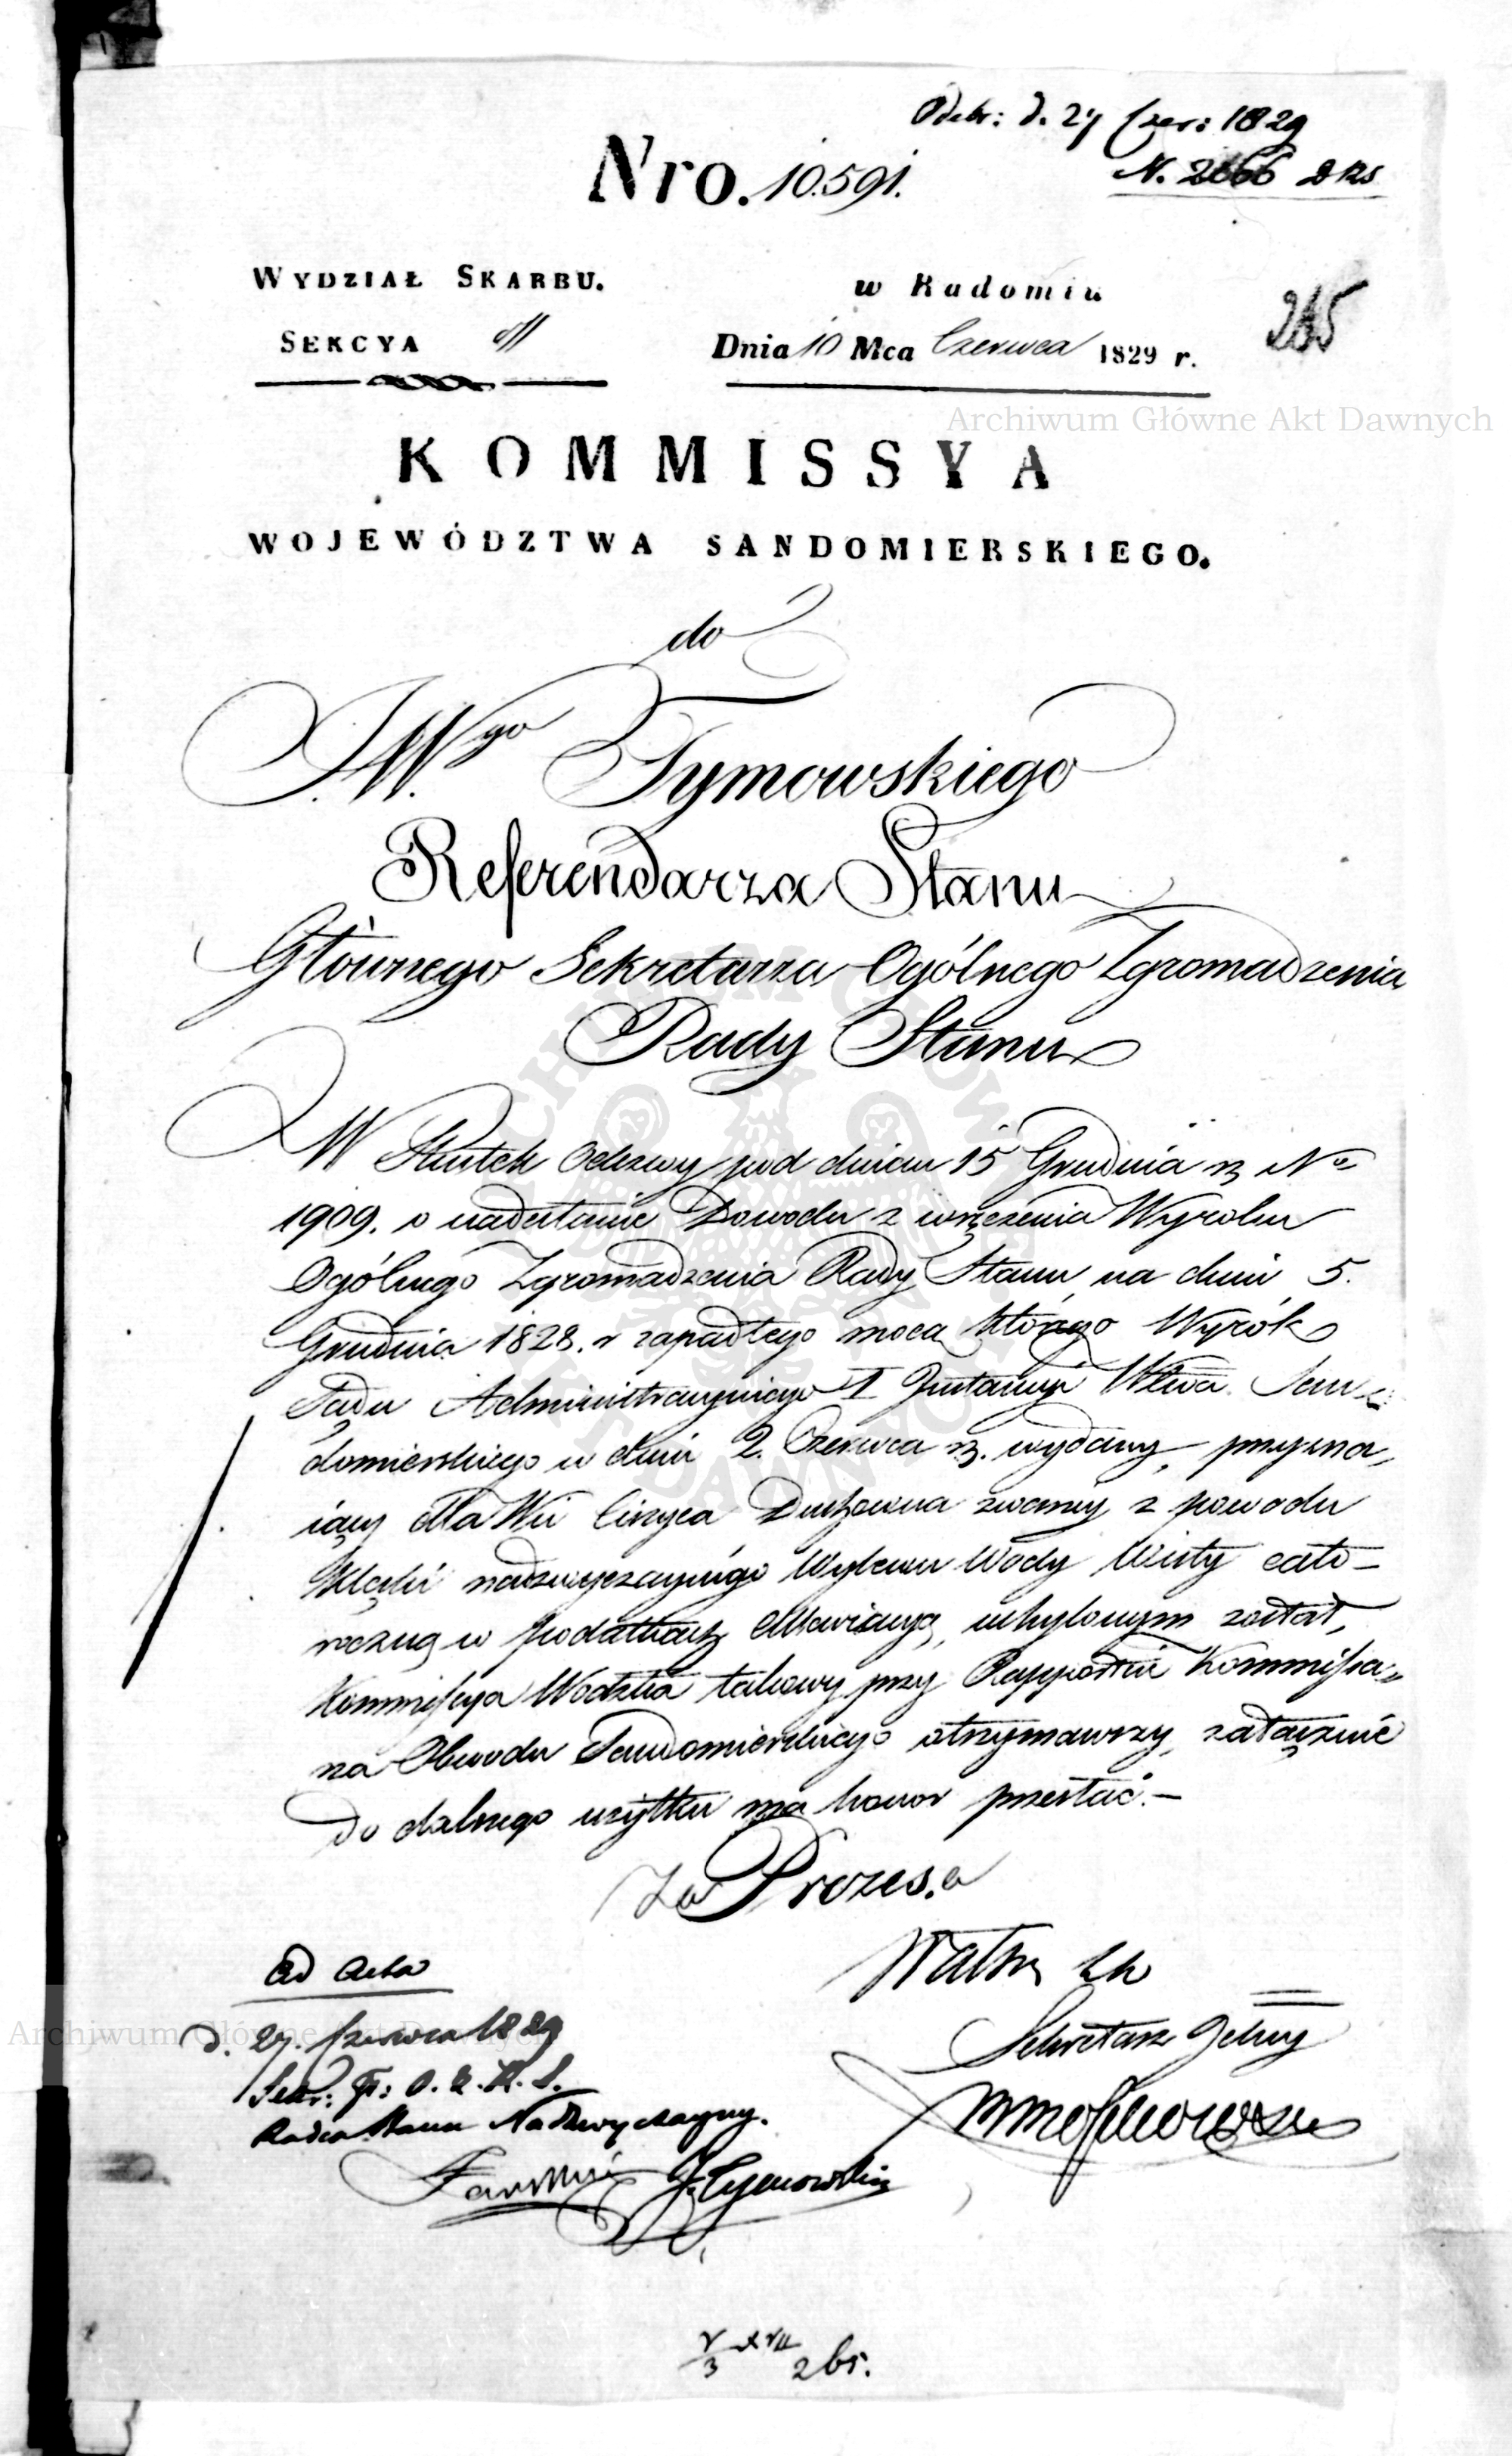 Odebr: d. 27 Czer: 1829
Nro. 10.591.
N. 2666
WYDZIAŁ SKARBU.
w Radomiu
265
SEKCYA
Dnia 10 Mca Czerwca 1829 r.
Archiwum Główne Akt Dawnych
KOMMISSYA
WOJEWÓDZTWA SANDOMIERSKIEGO.
do
J.W.go Tymowskiego
Referendarza Stanu
Głównego Sekretarza Ogólnego Zgromadzenia
Rady Stanu
W Skutek Odezwy pod dniem 15 Grudnia No
1909. o nadesłanie Dowodu z wręczenia Wyroku
Ogólnego Zgromadzenia Rady Stanu, na dniu 5.
Grudnia 1828. r zapadłego mocą którego Wyrók
Sądu Administracyinego I Instancyi Wztwa San
domierskiego w dniu 2. Czerwca wydany, przyzna,
iący dla Wsi Ciszyca Duchowna zwaney z powodu
Klęski nadzwyczaynégo Wylewu Wody Wisły cało-
roczną w podatkach, uchylonym został,
Kommissya Wodztwa takowy przy Rapporcie Kommissa„
rza Obwodu Sandomierskiego otrzymawszy, załącznie
do dalszego użytku ma honor przesłać.-
Za Prezesa
ad acta
d. 27. Czerwca 1829
Sekretarz Jelny
Sekr: O. Z. R. S.
Radca Stanu Nadzwyczayny.
J. Tymowski
265.